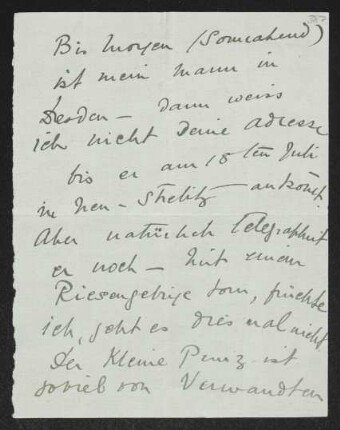 Bis Morgen (Sonnabend)
ist mein Mann in
Dresden – dann weiss
ich nicht seine Adresse
bis er am 15ten Juli
in Neu-Strelitz ankommt.
Aber natürlich telegraphirt
er noch – Mit einem
Riesengebirge tour, fürchte
ich, geht es dies mal nicht.
Der Kleine Prinz ist
soviel von Verwandten